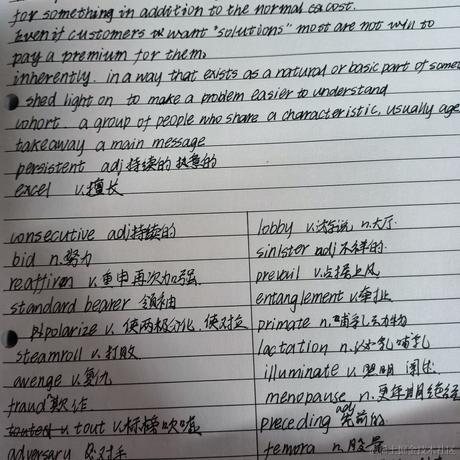 for something in addition to the normal cost.
Even if customers want "solutions" most are not will to
pay a premium for them.
inherently. in a way that exists as a natural or basic part of some
shed light on to make a problem easier to understand
cohort. a group of people who share a characteristic, usually age
takeaway a main message
persistent adj持续的 执意的
excel v.擅长
consecutive adj持续的
bid n.努力
reaffirm v.重申再次加强
standard bearer 领袖
polarize v.使两极分化,使对立
steamroll v.打败
avenge v.复仇
fraud 欺诈
tout v.标榜吹嘘
adversary 对手
lobby v.游说 n.大厅
sinister adj不祥的
prevail v.占据上风
entanglement v.牵扯
primate n.哺乳动物
lactation n.分泌哺乳
illuminate v.照明 阐述
menopause n.更年期绝经
preceding adj 先前的
femora n.股骨